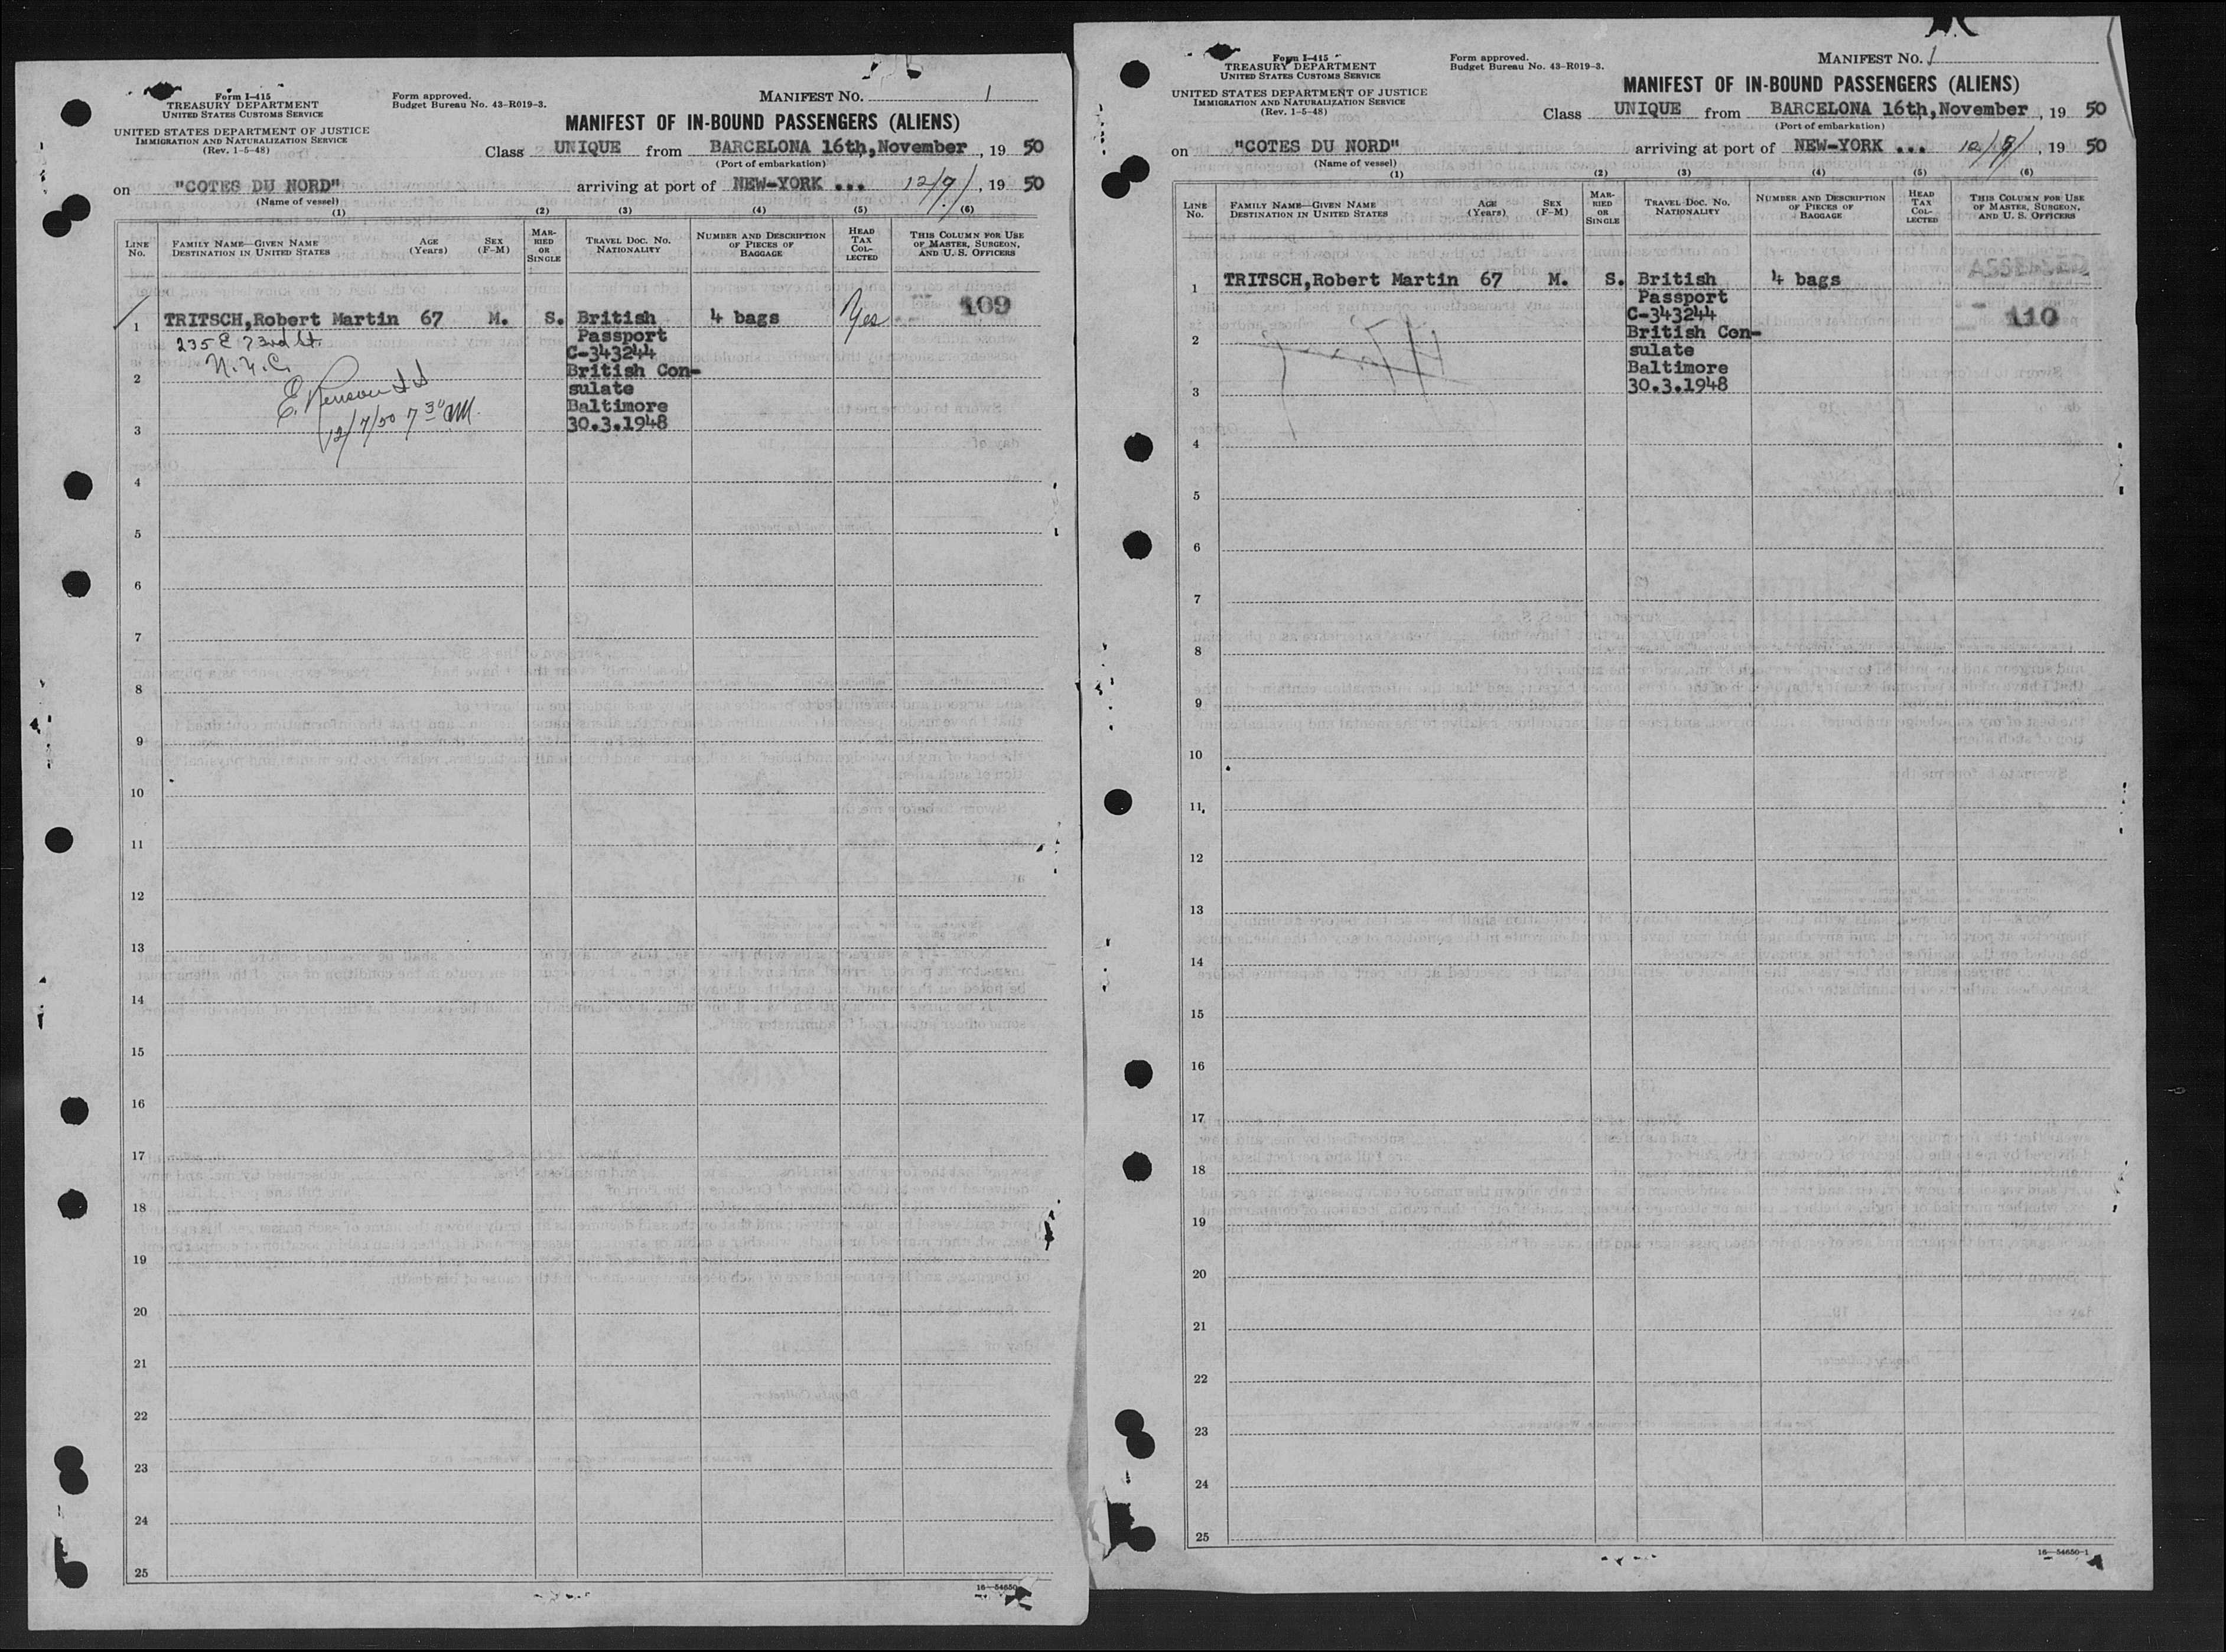 Form I-415
TREASURY DEPARTMENT
UNITED STATES CUSTOMS SERVICE
UNITED STATES DEPARTMENT OF JUSTICE
IMMIGRATION AND NATURALIZATION SERVICE
(Rev. 1-5-48)
Form approved.
Budget Bureau No. 43-R019-3.
MANIFEST NO. 1
MANIFEST OF IN-BOUND PASSENGERS (ALIENS)
Class UNIQUE from BARCELONA 16th, November, 19 50
(Port of embarkation)
on "COTES DU NORD" arriving at port of NEW-YORK ... 12/7/, 19 50
(Name of vessel)
(1) (2) (3) (4) (5) (6)
LINE No. FAMILY NAME—GIVEN NAME DESTINATION IN UNITED STATES AGE (Years) SEX (F-M) MARRIED OR SINGLE TRAVEL DOC. NO. NATIONALITY NUMBER AND DESCRIPTION OF PIECES OF BAGGAGE HEAD TAX COLLECTED THIS COLUMN FOR USE OF MASTER, SURGEON, AND U. S. OFFICERS
109
1 TRITSCH, Robert Martin 67 M. S. British 4 bags Yes
235 E 73rd St. Passport
N.Y.C. C-343244
2 British Con-
sulate
12/7/50 7 30 AM. Baltimore
3 30.3.1948
4
5
6
7
8
9
10
11
12
13
14
15
16
17
18
19
20
21
22
23
24
25
16—54650
Form I-415
TREASURY DEPARTMENT
UNITED STATES CUSTOMS SERVICE
UNITED STATES DEPARTMENT OF JUSTICE
IMMIGRATION AND NATURALIZATION SERVICE
(Rev. 1-5-48)
Form approved.
Budget Bureau No. 43-R019-3.
MANIFEST NO. 1
MANIFEST OF IN-BOUND PASSENGERS (ALIENS)
Class UNIQUE from BARCELONA 16th, November, 19 50
(Port of embarkation)
on "COTES DU NORD" arriving at port of NEW-YORK ... , 19 50
(Name of vessel)
(1) (2) (3) (4) (5) (6)
LINE No. FAMILY NAME—GIVEN NAME DESTINATION IN UNITED STATES AGE (Years) SEX (F-M) MARRIED OR SINGLE TRAVEL DOC. NO. NATIONALITY NUMBER AND DESCRIPTION OF PIECES OF BAGGAGE HEAD TAX COLLECTED THIS COLUMN FOR USE OF MASTER, SURGEON, AND U. S. OFFICERS
1 TRITSCH, Robert Martin 67 M. S. British 4 bags
Passport
C-343244 110
2 British Con-
sulate
Baltimore
3 30.3.1948
4
5
6
7
8
9
10
11
12
13
14
15
16
17
18
19
20
21
22
23
24
25
16—54650-1